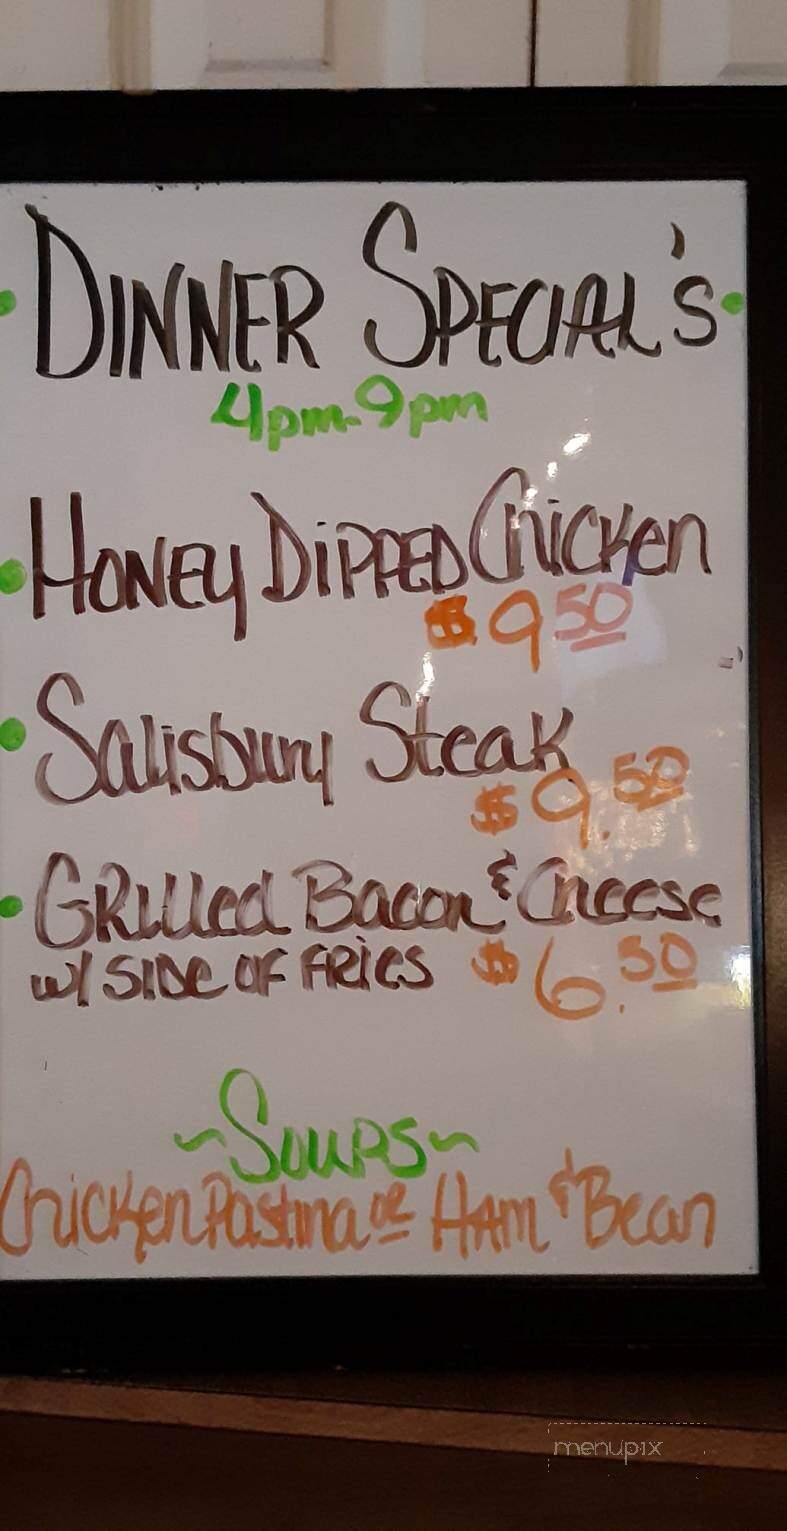 • DINNER SPECIAL'S •
4pm-9pm
• HONEY DIPPED Chicken
$9 50
• Salisbury Steak
$9.50
• GRilled Bacon & Cheese
w/ SIDE OF FRIES $6.50
~Soups~
Chicken Pastina or HAM & Bean
menupix